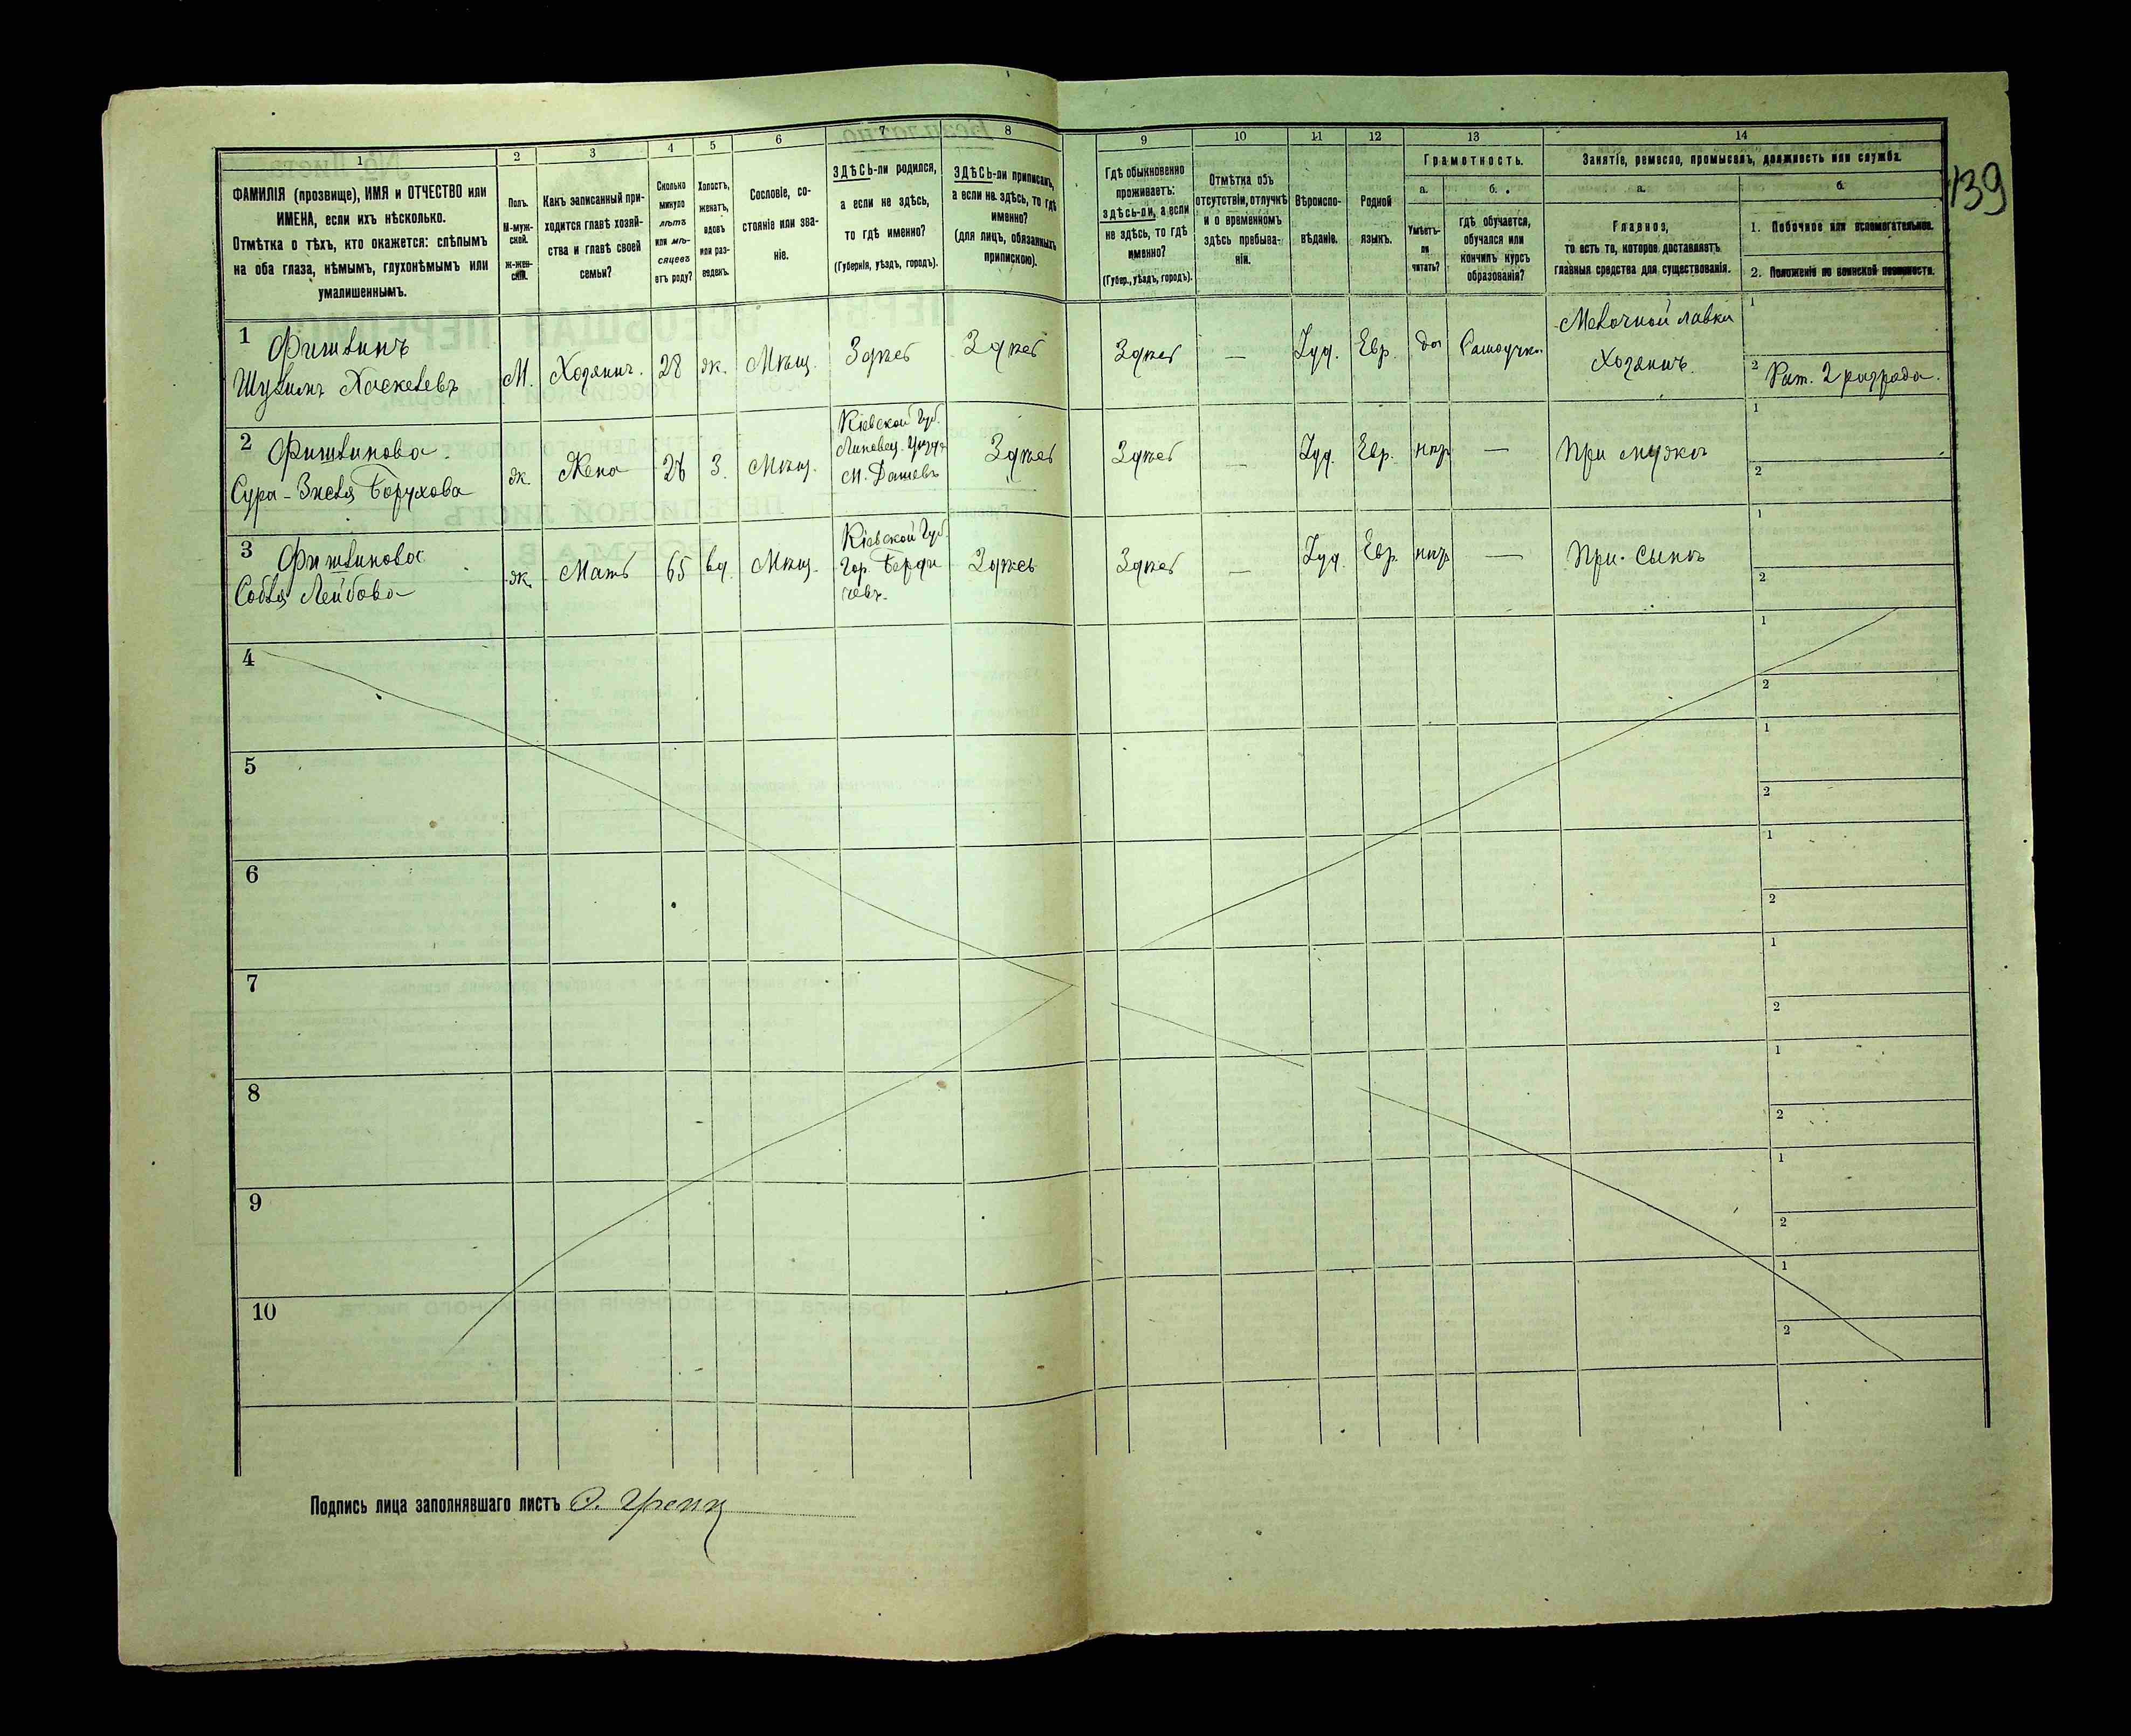 1 2 3 4 5 6 7 8 9 10 11 12 13 14
ФАМИЛІЯ (прозвище), ИМЯ и ОТЧЕСТВО или
ИМЕНА, если ихъ нѣсколько.
Отмѣтка о тѣхъ, кто окажется: слѣпымъ
на оба глаза, нѣмымъ, глухонѣмымъ или
умалишеннымъ.
Полъ.
М-муж-
ской.
Ж-жен-
скій.
Какъ записанный при-
ходится главѣ хозяй-
ства и главѣ своей
семьи?
Сколько
минуло
лѣтъ
или мѣ-
сяцевъ
отъ роду?
Холостъ,
женатъ,
вдовъ
или раз-
веденъ.
Сословіе, со-
стояніе или зва-
ніе.
ЗДѢСЬ-ли родился,
а если не здѣсь,
то гдѣ именно?
(Губернія, уѣздъ, городъ).
ЗДѢСЬ-ли приписанъ,
а если не здѣсь, то гдѣ
именно?
(для лицъ, обязанныхъ
припискою).
Гдѣ обыкновенно
проживаетъ:
здѣсь-ли, а если
не здѣсь, то гдѣ
именно?
(Губер., уѣздъ, городъ).
Отмѣтка объ
отсутствіи, отлучкѣ
и о временномъ
здѣсь пребыва-
ніи.
Вѣроиспо-
вѣданіе.
Родной
языкъ.
Грамотность.
а. б.
Умѣетъ-
ли
читать?
гдѣ обучается,
обучался или
кончилъ курсъ
образованія?
Занятіе, ремесло, промыселъ, должность или служба.
а. б.
Главное,
то есть то, которое доставляетъ
главныя средства для существованія.
1. Побочное или вспомогательное.
2. Положеніе по воинской повинности.
139
1 Фишлинъ
Шулимъ Хаскелевъ
М. Хозяинъ. 28 ж. Мѣщ. Здѣсь Здѣсь Здѣсь — Іуд. Евр. да Самоучка
Мелочной лавки
Хозяинъ.
1
2 Рат. 2 разряда.
2 Фишлинова
Сура-Зисля Борухова
ж. Жена 26 З. Мѣщ.
Кіевской Губ.
Липовец. Уѣзда
М. Дашевъ
Здѣсь Здѣсь — Іуд. Евр. нѣтъ — При мужѣ
1
2
3 Фишлинова
Собля Лейбова
ж. Мать 65 вд. Мѣщ.
Кіевской Губ.
Гор. Берди
чевъ.
Здѣсь Здѣсь — Іуд. Евр. нѣтъ — При сынѣ
1
2
4
1
2
5
1
2
6
1
2
7
1
2
8
1
2
9
1
2
10
1
2
Подпись лица заполнявшаго листъ